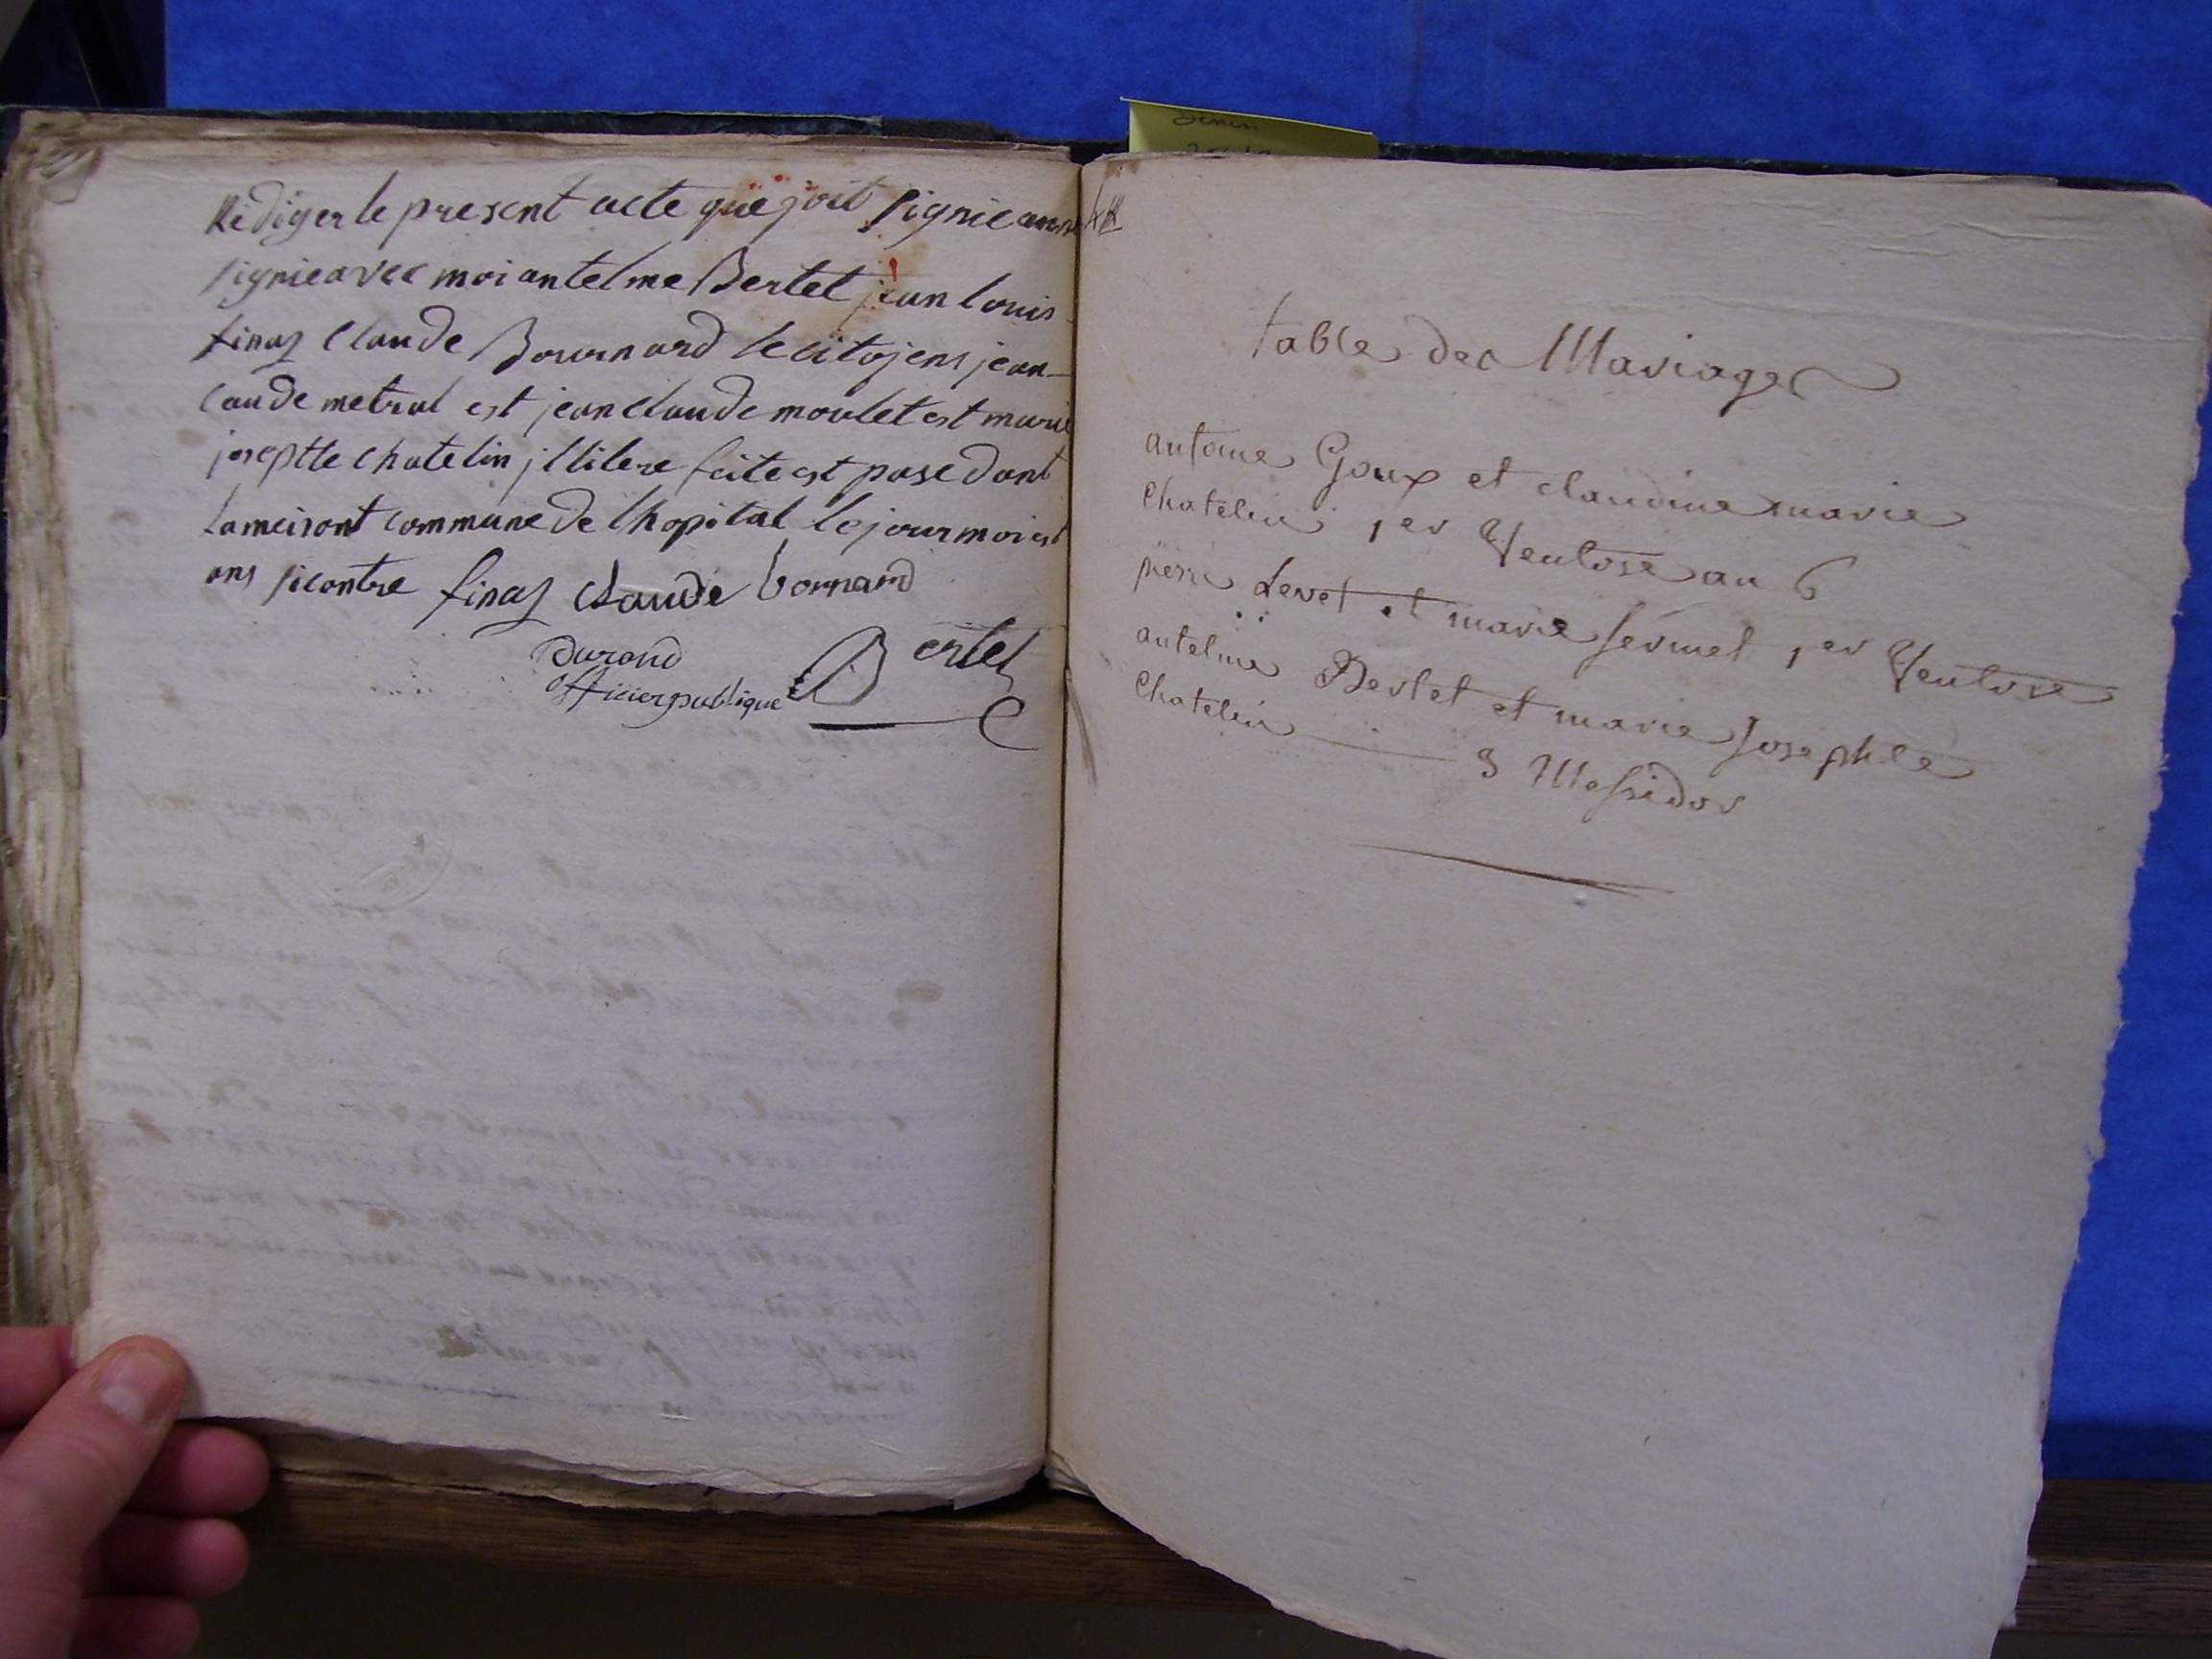 Rédiger le present acte que joit signie
signie avec moi antelme Bertet jean louis
finas Claude Bournard le citojens jean
Caude metral est jean claude moulet est marie
josephte chatelin jllilere feite est pase dant
lameiront commune de lhopital le jour moi est
ans sicontre finas claude bornand
Durand
officier publique
Bertet
table des Mariages
antoine Goux et claudine marie
Chatelin 1er Ventose an 6
pierre Levet et marie sermet 1er Ventose
antelme Bertet et marie Josephte
Chatelin 3 Messidor